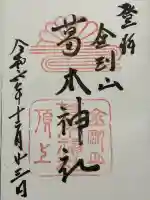 登拝
金剛山
葛木神社
令和六年十二月廿三日
金剛山
頂上